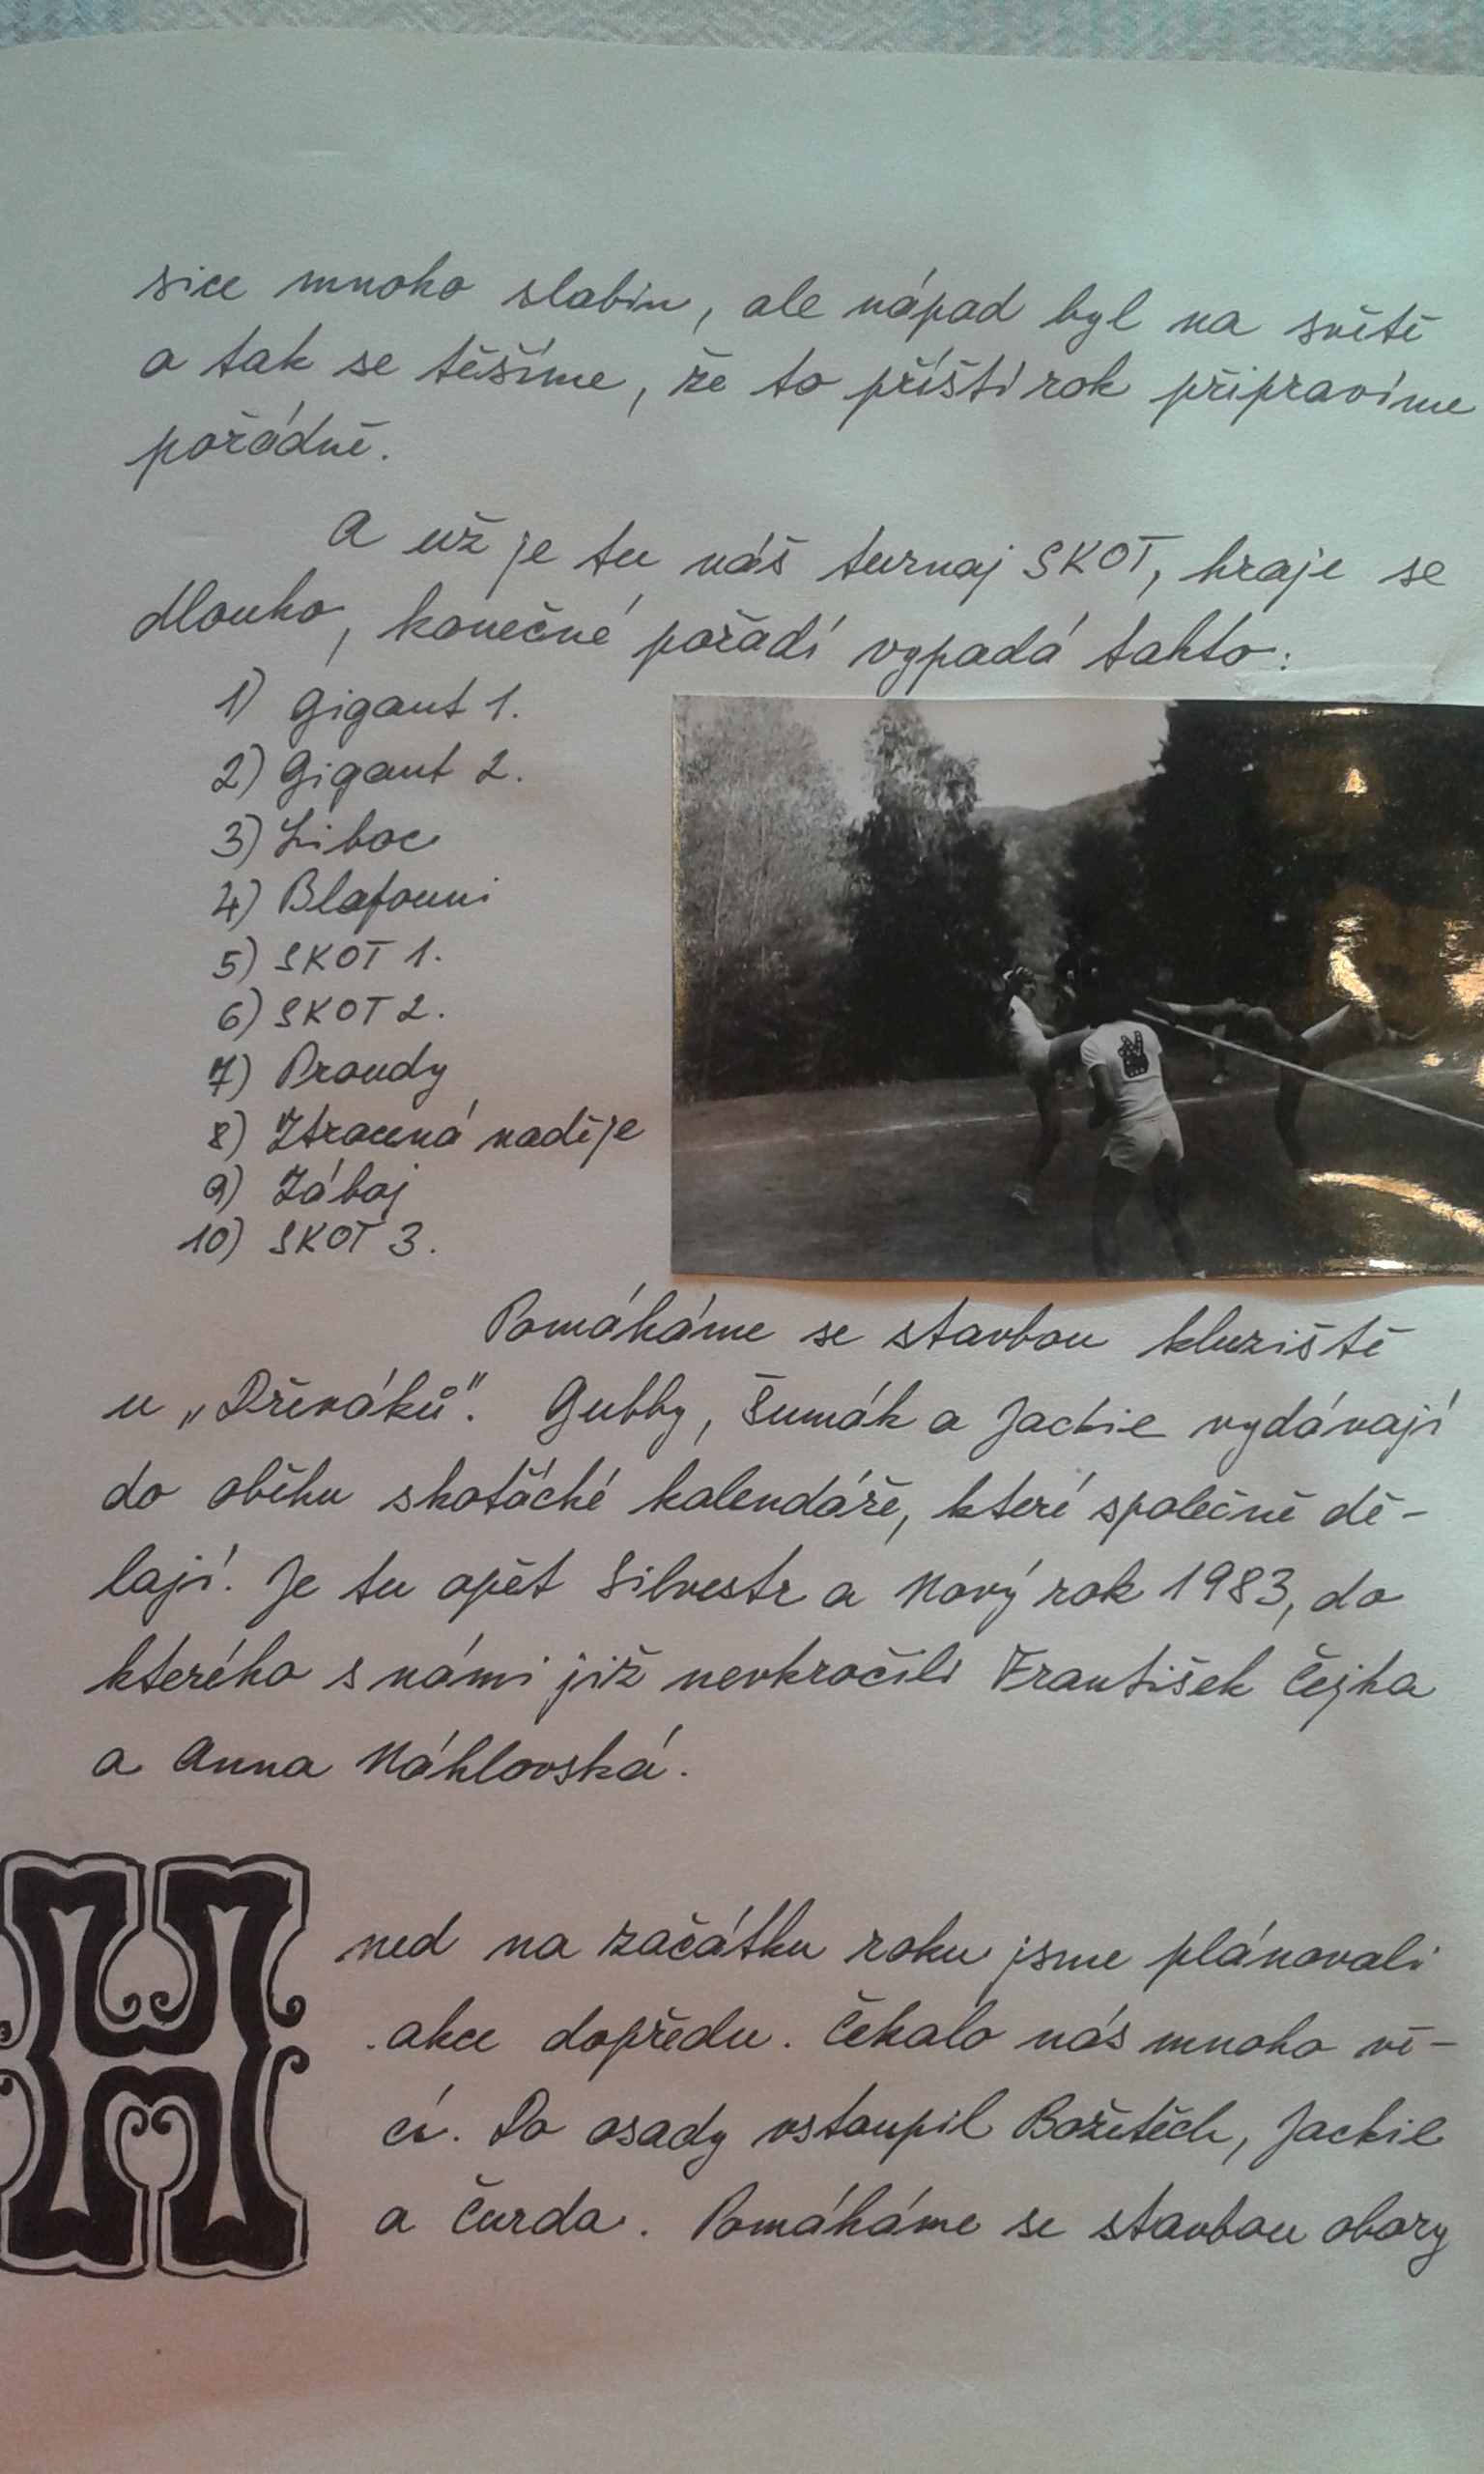 sice mnoho slabin, ale nápad byl na světě
a tak se těšíme, že to příští rok připravíme
pořádně.
A už je tu náš turnaj SKOT, hraje se
dlouho, konečné pořadí vypadá takto:
1) Gigant 1.
2) Gigant 2.
3) Liboc
4) Blafouni
5) SKOT 1.
6) SKOT 2.
7) Proudy
8) Ztracená naděje
9) Záboj
10) SKOT 3.
Pomáháme se stavbou kluziště
u „Dřeváků". Gubby, Šumák a Jackie vydávají
do oběhu skoťácké kalendáře, které společně dě-
lají. Je tu opět Silvestr a Nový rok 1983, do
kterého s námi již nevkročili František Čejka
a Anna Náhlovská.
Hned na začátku roku jsme plánovali
akce dopředu. Čekalo nás mnoho vě-
cí. Do osady vstoupil Božetěch, Jackie
a Čurda. Pomáháme se stavbou obory